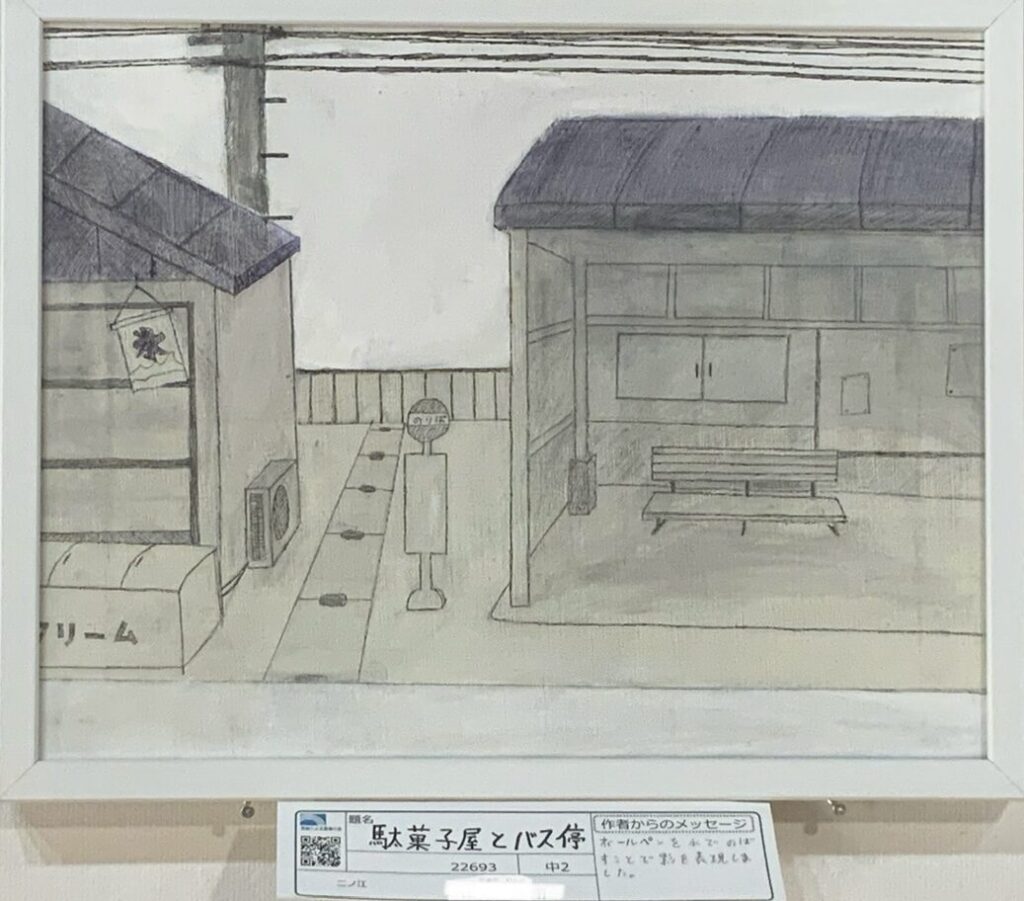 氷
のりば
クリーム
題名
駄菓子屋とバス停
22693
中2
二ノ江
作者からのメッセージ
ボールペンを水でのば
すことで影を表現しま
した。